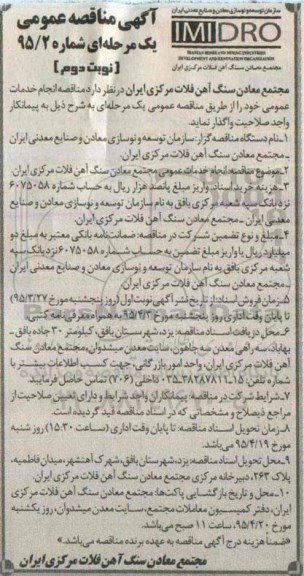 سازمان توسعه و نوسازی معادن و صنایع معدنی ایران
IMIDRO
IRANIAN MINES AND MINING INDUSTRIES
DEVELOPMENT AND RENOVATION ORGANIZATION
مجتمع معادن سنگ آهن فلات مرکزی ایران
آگهی مناقصه عمومی
یک مرحله‌ای شماره ۹۵/۲
(نوبت دوم)
مجتمع معادن سنگ آهن فلات مرکزی ایران در نظر دارد مناقصه انجام خدمات
عمومی خود را از طریق مناقصه عمومی یک مرحله‌ای به شرح ذیل به پیمانکار
واجد صلاحیت واگذار نماید.
۱_نام دستگاه مناقصه گزار: سازمان توسعه و نوسازی معادن و صنایع معدنی ایران
_ مجتمع معادن سنگ آهن فلات مرکزی ایران.
۲_موضوع مناقصه: انجام خدمات عمومی مجتمع معادن سنگ آهن فلات مرکزی ایران.
۳_هزینه خرید اسناد: واریز مبلغ پانصد هزار ریال به حساب شماره ۶۰۷۵۰۵۸
نزد بانک سپه شعبه مرکزی بافق به نام سازمان توسعه و نوسازی معادن و صنایع
معدنی ایران _ مجتمع معادن سنگ آهن فلات مرکزی ایران.
۴_مبلغ و نوع تضمین شرکت در مناقصه: ضمانت‌نامه بانکی معتبر به مبلغ دو
میلیارد ریال یا واریز مبلغ تضمین به حساب شماره ۶۰۷۵۰۵۸ نزد بانک سپه
شعبه مرکزی بافق به نام سازمان توسعه و نوسازی معادن و صنایع معدنی ایران
_ مجتمع معادن سنگ آهن فلات مرکزی ایران.
۵_زمان فروش اسناد: از تاریخ نشر آگهی نوبت اول (روز پنجشنبه مورخ ۹۵/۳/۲۷)
تا پایان وقت اداری روز پنجشنبه مورخ ۹۵/۴/۳ به همراه معرفی‌نامه کتبی
۶_محل دریافت اسناد مناقصه: یزد، شهرستان بافق، کیلومتر ۳۰ جاده بافق _
بهاباد، سه راهی معدن سه چاهون، سایت معدن میشدوان، مجتمع معادن سنگ
آهن فلات مرکزی ایران، واحد امور بازرگانی، جهت کسب اطلاعات بیشتر با
شماره تلفن: ۱۵_۳۸۲۸۷۸۱۱_۰۳۵ داخلی (۷۰۶) تماس حاصل فرمایید
۷_شرایط شرکت در مناقصه: پیمانکاران واجد شرایط و دارای تعیین صلاحیت از
مراجع ذیصلاح و مشخصاتی که در اسناد مناقصه قید گردیده است.
۸_زمان تحویل اسناد مناقصه: تا پایان وقت اداری (ساعت ۱۵:۳۰) روز شنبه
مورخ ۹۵/۴/۱۹ می‌باشد.
۹_محل تحویل اسناد مناقصه: یزد، شهرستان بافق، شهرک آهنشهر، میدان فاطمیه،
پلاک ۲۶۳، دبیرخانه مرکزی مجتمع معادن سنگ آهن فلات مرکزی ایران.
۱۰_محل و تاریخ بازگشایی پاکت‌ها: مجتمع معادن سنگ آهن فلات مرکزی
ایران، دفتر کمیسیون معاملات مجتمع، سایت معدن میشدوان، روز یکشنبه
مورخ ۹۵/۴/۲۰، ساعت ۱۱ صبح می‌باشد.
«ضمناً هزینه درج آگهی مناقصه به عهده برنده مناقصه می‌باشد.»
مجتمع معادن سنگ آهن فلات مرکزی ایران